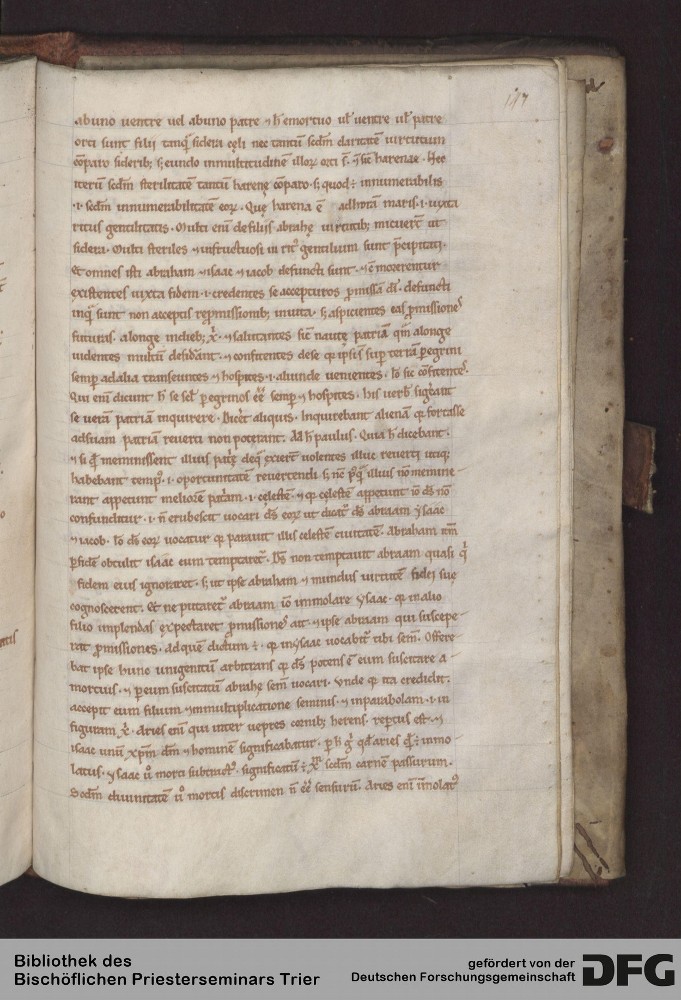 147
abuno uentre uel abuno patre ⁊ h̄ emortuo uł uentre uł patre
orti sunt filij tanq̄ sidera cęli nec tantū scdm claritatē uirtutum
cōparo siderib; s; eundo inmultitudinē illoꝝ orti s̄ q̄ sic̄ harenae. Nec
iterū scdm sterilitatē tantū harenę cōparo. s; quod ÷ innumerabilis
.i. scdm innumerabilitatē eoꝝ. Quę harena ē adhorā maris. i. iuxta
ritus gentilitatis. Multi enī de filijs abrahę uirtutib; micuer̄t ut
sidera. Multi steriles ⁊ infructuosi in rit' gentilium sunt p̄cipitati.
Et omnes isti abraham ⁊ isaac ⁊ iacob defuncti sunt. ⁊ cū morerentur
existentes iuxta fidem. i. credentes se accepturos ꝓmissa dī. defuncti
inq̄ sunt non acceptis repromissionib; inuita. s; aspicientes eas ꝓmissiones
futuras. alonge indieb; χ̄. ⁊ salutantes sic̄ nautę patriā qm̄ alonge
uidentes multū desidānt. ⁊ confitentes de se qꝫ ipsi s̄ sup̄ terrā ꝑegrini
semꝑ adalia transeuntes ⁊ hospites. i. aliunde uenientes. Iō sic cōfitentes.
Qui enī dicunt h̄ se scł ꝑegrinos ēē semꝑ ⁊ hospites. his uerb' signīcant
se uerā patriā inquirere. Dicēt aliquis. Inquirebant alienā qꝫ fortasse
adsuam patriā reuerti non poterant. Ad h̄ paulus. Quia h̄ dicebant.
⁊ si q̄dē meminissent illius patrię deq̄ exierт̄ uolentes illuc reuerti utiq;
habebant temp'. i. oportunitatē reuertendi s; nc̄ p'q̄ illius nō memine-
rant appetunt meliorē patriam. i. cęlestē. ⁊ qꝫ cęlestē appetunt iō dś nō
confunditur. i. n̄ erubescit uocari dś eoꝝ ut dicat' dś abraam ysaac
⁊ iacob. Iō dś eoꝝ uocatur qꝫ parauit illis cęlestē ciuitatē. Abraham nāē
ꝑ fidē obtulit isaac cum temptaret'. Dś non temptauit abraam quasi q̇
fidem eius ignoraret. s; ut ipse abraham ⁊ mundus uirtutē fidei suę
cognoscerent. Et ne putaret' abraam iō immolare ysaac. qꝫ in alio
filio implendas expectaret ꝓmissiones ait. ⁊ ipse abraam qui suscepe-
rat ꝓmissiones. ad quē dictum ÷. qꝫ inysaac uocabit' tibi sem̄. Offere-
bat ipse hunc unigenitū arbitrans qꝫ dś potens ē eum suscitare a-
mortuis. ⁊ ꝑeum suscitatū abrahę sem̄ uocari. Vnde qꝫ ita credidit.
accepit eum filium ⁊ inmultiplicatione seminis. ⁊ inparabolam. i. in
figuram χ̄. Aries enī qui inter uepres cornib; herens. repertus est. ⁊
isaac unū xpm̄ dm̄ ⁊ hominē significabatur. ꝑ h̄ g̊ qd̄ aries q̄ ÷ immo-
latus. Ysaac u̇ morti subtract'. significatū ÷ χ̄m scdm carnē passurum.
Secdm diuinitatē u̇ mortis discrimen n̄ ēē sensurū. Aries enī īmolat'
Bibliothek des
Bischöflichen Priesterseminars Trier
gefördert von der
Deutschen Forschungsgemeinschaft
DFG